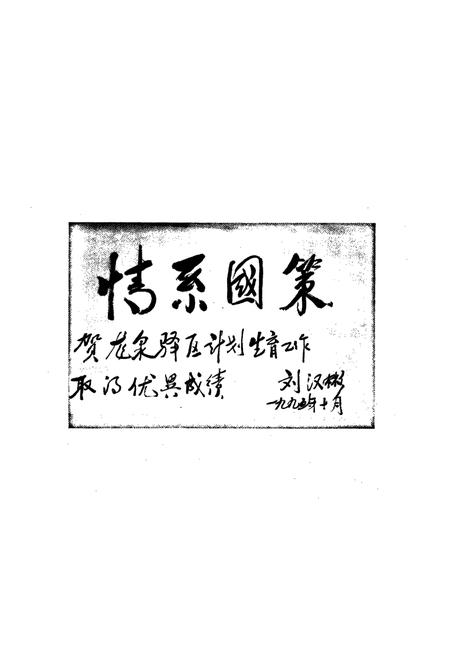 情系國策
贺龙泉驿区计划生育工作
取得优異成绩
刘汉彬
一九九五年十月